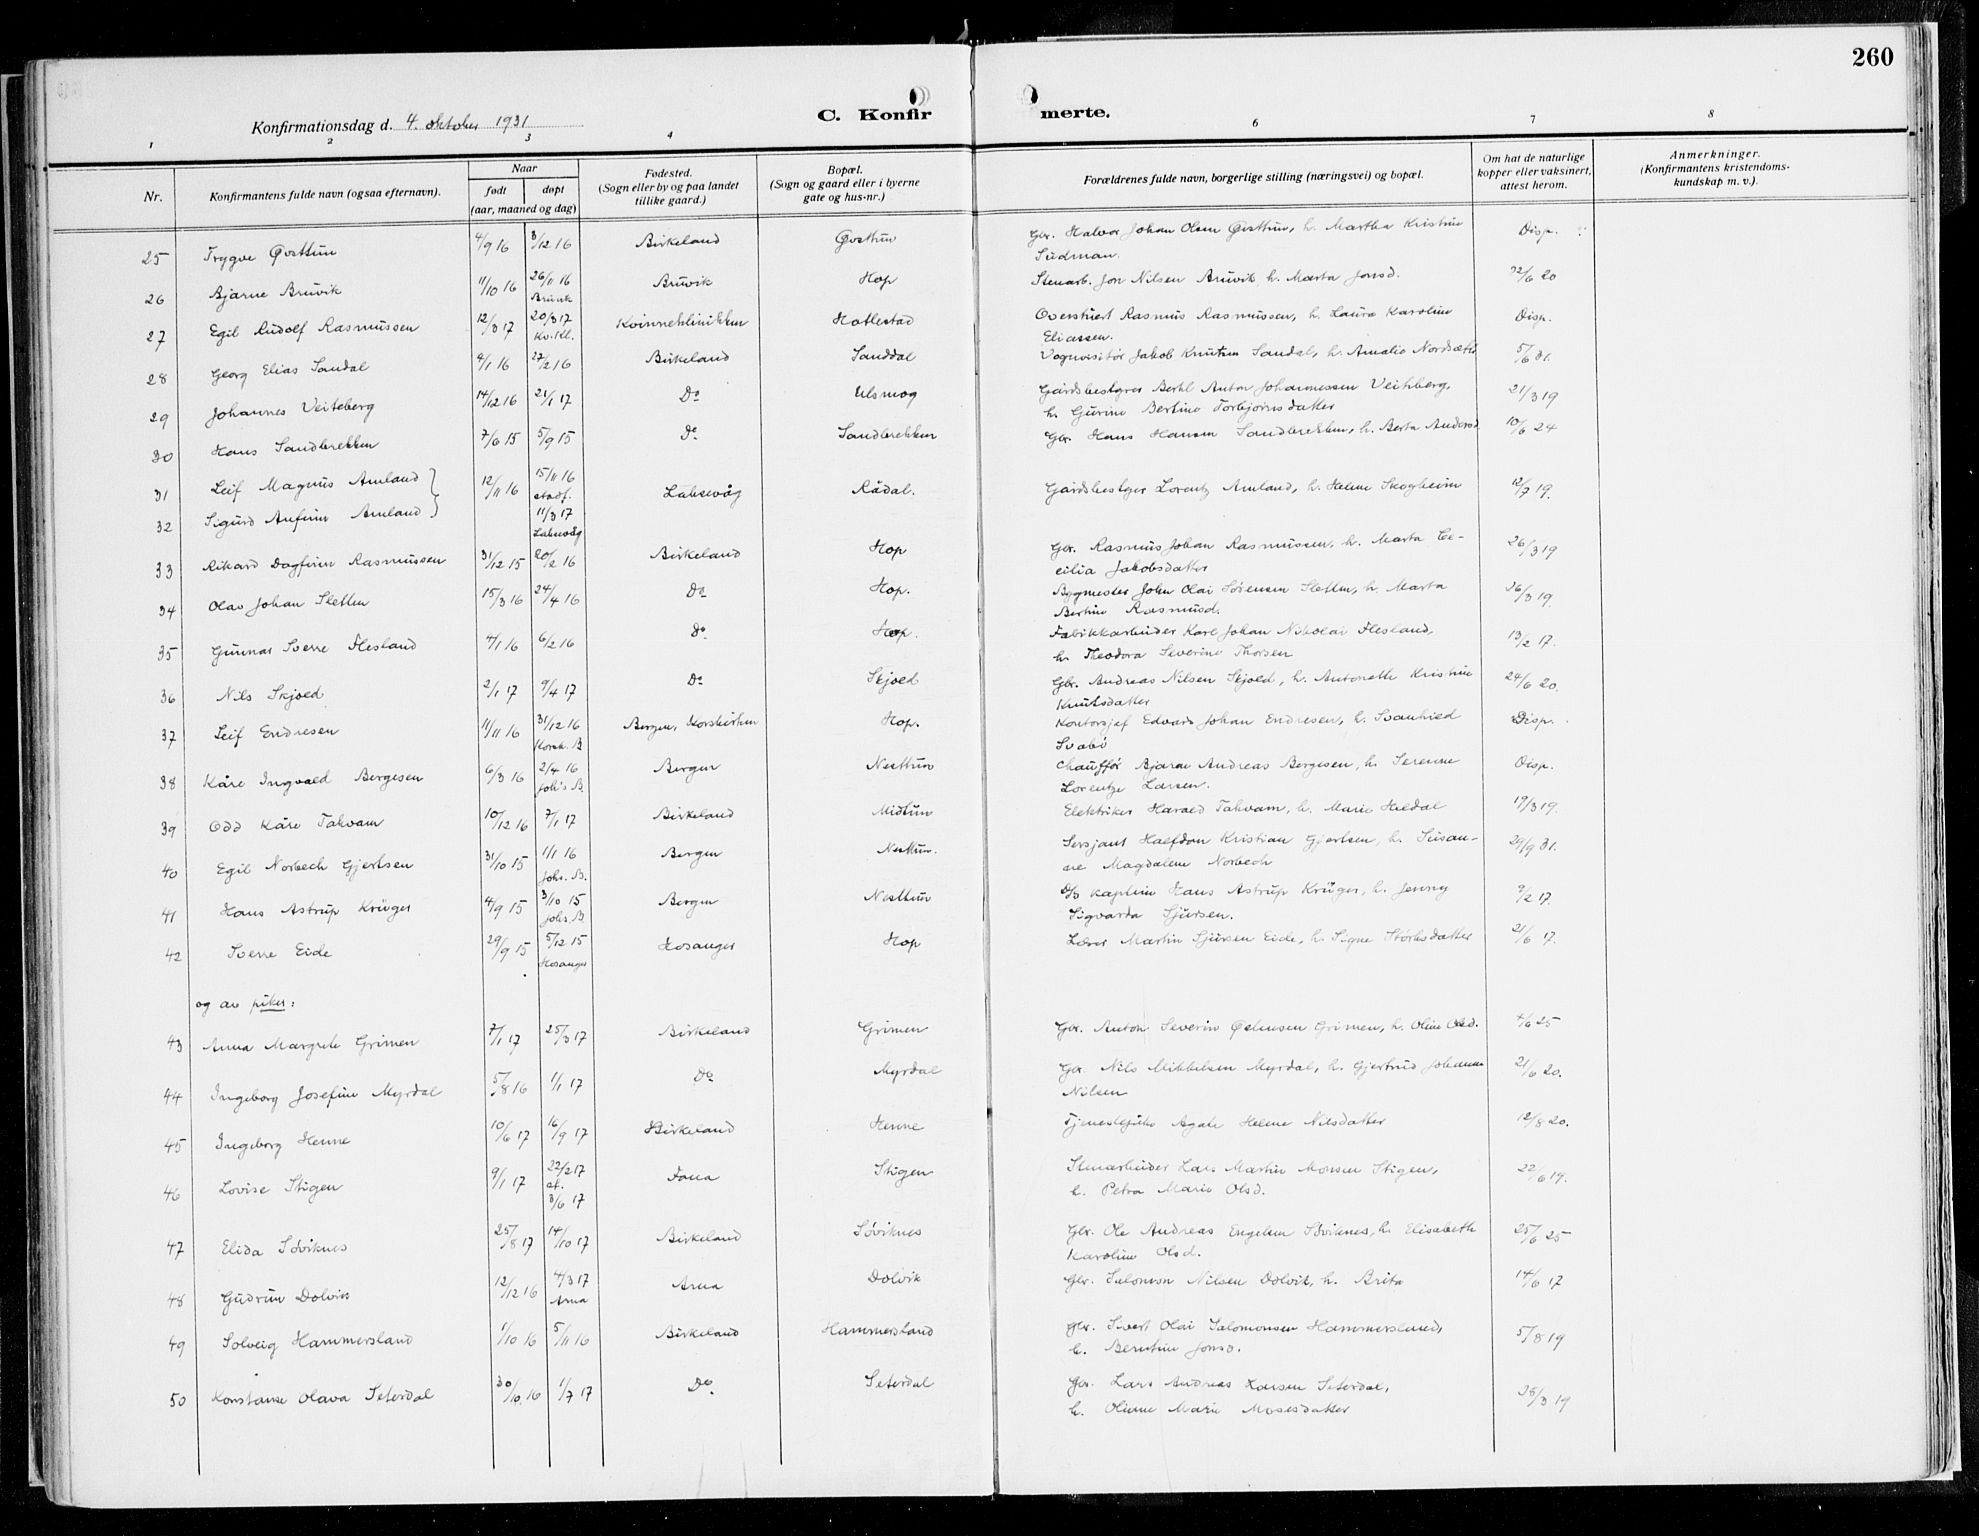 260
Konfirmationsdag d. 4. oktober 1931
C. Konfirmerte.
1 2 3 4 6 7 8
Nr.
Konfirmantens fulde navn (ogsaa efternavn).
Naar
født døpt
(aar, maaned og dag)
Fødested.
(Sogn eller by og paa landet
tillike gaard.)
Bopæl.
(Sogn og gaard eller i byerne
gate og hus-nr.)
Forældrenes fulde navn, borgerlige stilling (næringsvei) og bopæl.
Om hat de naturlige
kopper eller vaksinert,
attest herom.
Anmerkninger.
(Konfirmantens kristendoms-
kundskap m. v.).
25 Trygve Øvsttun 4/9 16 3/12 16 Birkeland Øvsttun Gbr. Halvor Johan Olsen Øvsttun, h. Martha Kristine Disp.
Sudman.
26 Bjarne Bruvik 11/10 16 26/11 16 Bruvik Hop Stenarb. Jon Nilsen Bruvik, h. Marta Jonsd. 22/6 20
Bruvik
27 Egil Rudolf Rasmussen 12/3 17 20/3 17 Kvinneklinikken Hatlestad Overstuert Rasmus Rasmussen, h. Laura Karoline Disp.
Kv. Kl. Eliassen.
28 Georg Elias Sandal 4/1 16 27/2 16 Birkeland Sanddal Vognvisitør Jakob Knutsen Sandal, h. Amalie 5/6 31.
29 Johannes Veiteberg 14/12 16 21/1 17 Do Ulsmog Gårdsbestyrer Bertel Anton Johannessen Veiteberg, 21/3 19
h. Gurine Bertine Torbjørnsdatter
30 Hans Sandbrekken 7/6 15 5/9 15 Do Sandbrekken Gbr. Hans Hansen Sandbrekken, h. Berta Andersd. 10/6 24
31 Leif Magnus Amland 12/11 16 15/11 16 Laksevåg Rådal. Gårdsbestyrer Lorentz Amland, h. Helene Skogheim 12/7 19.
stadf.
32 Sigurd Anfinn Amland 11/3 17
Laksevåg
33 Rikard Dagfinn Rasmussen 31/12 15 20/2 16 Birkeland Hop Gbr. Rasmus Johan Rasmussen, h. Marta Ce- 26/3 19
cilia Jakobsdatter
34 Olav Johan Sletten 15/3 16 24/4 16 Do Hop. Bygmester John Olai Sørensen Sletten, h. Marta 26/3 19.
Bertine Rasmusd.
35 Gunnar Sverre Flesland 4/1 16 6/2 16 Do. Hop. Fabrikkarbeider Karl Johan Nikolai Flesland, 13/2 17.
h. Theodora Severine Thorsen
36 Nils Skjold 2/1 17 9/4 17 Do Skjold Gbr. Andreas Nilsen Skjold, h. Antonette Kristine 24/6 20.
Knutsdatter
37 Leif Endresen 11/11 16 31/12 16 Bergen, Korskirken Hop. Kontorsjef Edvard Johan Endresen, h. Svanhild Disp.
Korsk. B. Svabø
38 Kåre Ingvald Bergesen 6/3 16 2/4 16 Bergen Nesttun Chauffør Bjarne Andreas Bergesen, h. Serenne Disp.
Joh's B. Lorentze Larsen.
39 Odd Kåre Takvam 10/12 16 7/1 17 Birkeland Midtun Elektriker Harald Takvam, h. Marie Heldal 19/3 19.
40 Egil Norbech Gjertsen 31/10 15 1/1 16 Bergen Nesttun. Sersjant Halfdan Kristian Gjertsen, h. Susan- 29/9 31.
Johs. B. ne Magdalene Norbech
41 Hans Astrup Krüger 4/9 15 3/10 15 Bergen Nesttun D/S kaptein Hans Astrup Krüger, h. Jenny 9/2 17.
Johs. B. Sigvarda Sjursen.
42 Sverre Eide 29/9 15 5/12 15 Hosanger Hop Lærer Martin Sjursen Eide, h. Signe Størksdatter 21/6 17.
Hosanger
og av piker:
43 Anna Margrete Grimen 7/1 17 25/3 17 Birkeland Grimen Gbr. Anton Severin Østensen Grimen, h. Oline Olsd. 4/6 25
44 Ingeborg Josefine Myrdal 5/8 16 1/1 17 Do Myrdal Gbr. Nils Mikkelsen Myrdal, h. Gjertrud Johanne 21/6 20.
Nilsen
45 Ingeborg Henne 10/6 17 16/9 17 Birkeland Henne Tjenestepike Agate Helene Nilsdatter 12/8 20.
46 Lovise Stigen 9/1 17 22/2 17 Fana Stigen Stenarbeider Lars Martin Monsen Stigen, 22/6 19.
st.
3/6 17 h. Petra Marie Olsd.
47 Elida Søviknes 25/8 17 14/10 17 Birkeland Søviknes Gbr. Ole Andreas Engelsen Søviknes, h. Elisabeth 25/6 25
Karoline Olsd.
48 Gudrun Dolvik 12/12 16 4/3 17 Arna Dolvik Gbr. Salomon Nilsen Dolvik, h. Brita 14/6 17
Arna
49 Solveig Hammersland 1/10 16 5/11 16 Birkeland Hammersland Gbr. Sivert Olai Salomonsen Hammersland, 5/8 19
h. Berntine Jonsd.
50 Konstanse Olava Seterdal 30/10 16 1/7 17 Do. Seterdal Gbr. Lars Andreas Larsen Seterdal, 28/3 19
h. Oline Marie Mosesdatter